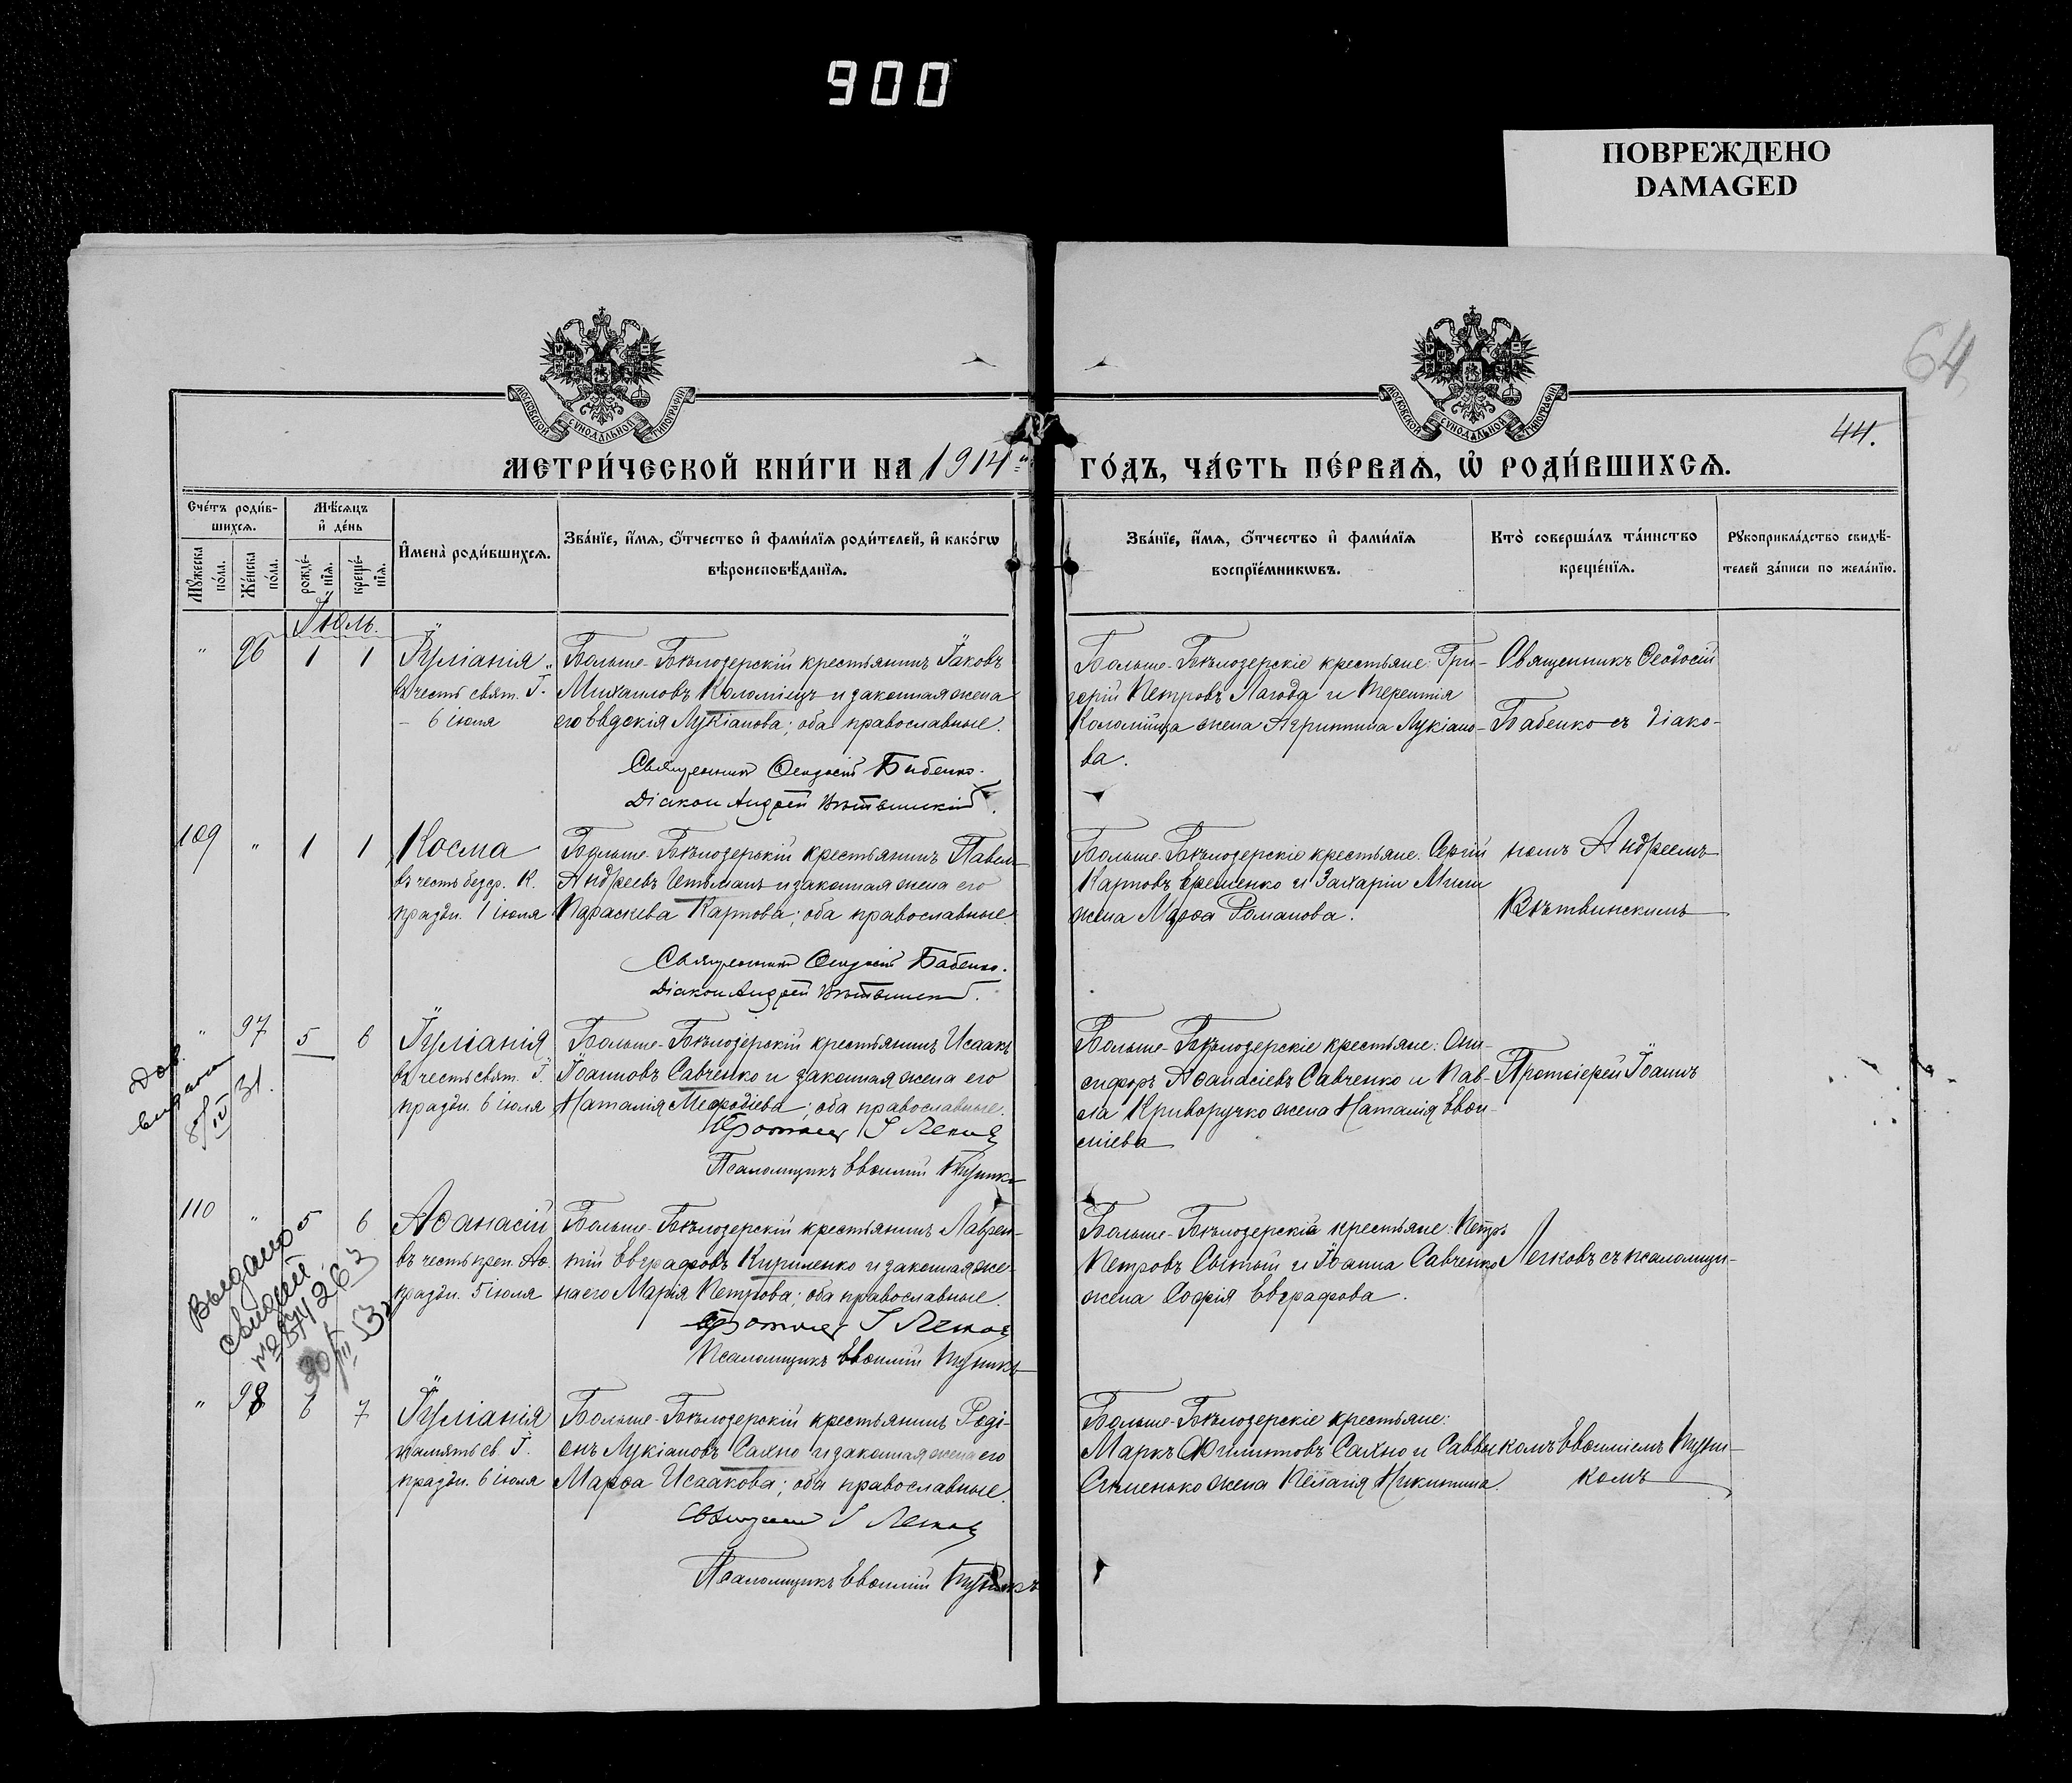 900
ПОВРЕЖДЕНО
DAMAGED
64
44.
МОСКОВСКОЙ СѴНОДАЛЬНОЙ ТИПОГРАФІИ
МОСКОВСКОЙ СѴНОДАЛЬНОЙ ТИПОГРАФІИ
МЕТРИ́ЧЕСКОЙ КНИ́ГИ НА 1914 й
ГО́ДЪ, ЧА́СТЬ ПЕ́РВАѦ, Ѽ РОДИ́ВШИХСѦ.
Сче́тъ роди́в-
шихсѧ.
Мꙋжеска
по́ла.
Же́нска
по́ла.
Мѣ́сѧцъ
и҆ де́нь
рожде́-
нїѧ.
креще́-
нїѧ.
И҆мена̀ роди́вшихсѧ.
Зва́нїе, и҆́мѧ, ѻ҆́тчество и҆ фами́лїѧ роди́телей, и҆ како́гѡ
вѣроисповѣ́данїѧ.
Зва́нїе, и҆́мѧ, ѻ҆́тчество и҆ фами́лїѧ
воспрїе́мникѡвъ.
Кто̀ соверша́лъ та́инство
креще́нїѧ.
Рꙋкоприкла́дство свидѣ́-
телей за́писи по жела́нїю.
Іюль.
" 96 1 1
Іуліанія
въ честь свят. І.
– 6 іюля
Больше-Бѣлозерскій крестьянинъ Іаковъ
Михаиловъ Коломіецъ и законная жена
его Евдокія Лукіанова; оба православные.
Священник Феодосій Бабенко.
Діакон Андрей Вѣтвинскій.
Больше-Бѣлозерскіе крестьяне: Гри-
горій Петровъ Лагода и Терентія
Коломійца жена Агриппина Лукіано-
ва.
Священникъ Феодосій
Бабенко съ діако-
109 " 1 1
Косма
въ честь безср. К.
праздн. 1 іюля
Больше-Бѣлозерскій крестьянинъ Павелъ
Андреевъ Гетьманъ и законная жена его
Параскева Карпова; оба православные
Священник Феодосій Бабенко.
Діакон Андрей Вѣтвинскій.
Больше-Бѣлозерскіе крестьяне: Сергій
Карповъ Еременко и Захаріи
жена Марѳа Романова.
номъ Андреемъ
Вѣтвинскимъ
" 97 5 6
Іуліанія
въ честь свят. І.
праздн. 6 іюля
Больше-Бѣлозерскій крестьянинъ Исаакъ
Іоанновъ Савченко и законная жена его
Наталія Меѳодіева; оба православные.
Протоіерей І Легков
Псаломщикъ Евѳимій
Больше-Бѣлозерскіе крестьяне: Они-
сифоръ Аѳанасіевъ Савченко и Пав-
ла Криворучко жена Наталія Евѳи-
міева
Протоіерей Іоаннъ
31.
110 " 5 6
Аѳанасій
въ честь преп. Аѳ.
праздн. 5 іюля
Больше-Бѣлозерскій крестьянинъ Лаврен-
тій Евграфовъ Кириленко и законная же-
на его Марія Петрова; оба православные.
Протоіерей І Легков
Псаломщикъ Евѳимій
Больше-Бѣлозерскіе крестьяне: Петръ
Петровъ Сытый и Іоанна Савченко
жена Софія Евграфова.
Легковъ съ псаломщи-
Выдано
" 98 6 7
Іуліанія
память св. І.
праздн. 6 іюля
Больше-Бѣлозерскій крестьянинъ Роді-
онъ Лукіановъ Сахно и законная жена его
Марѳа Исаакова; оба православные.
І Легков
Псаломщикъ Евѳимій
Больше-Бѣлозерскіе крестьяне:
Маркъ Филипповъ Сахно и Саввы
Семенько жена Пелагія Никитина.
комъ Евѳиміемъ
комъ